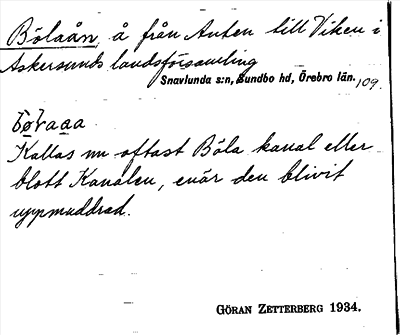 Bölaån, å från Anten till Viken i
Askersunds landsförsamling
Snavlunda s:n, Sundbo hd, Örebro län. 109.
Kallas nu oftast Böla kanal eller
blott Kanalen, enär den blivit
uppmuddrad.
GÖRAN ZETTERBERG 1934.